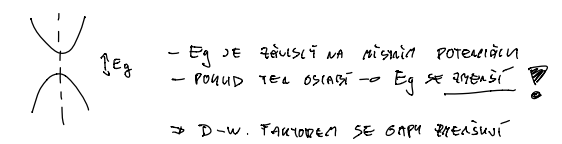 ↕Eg
- Eg JE ZÁVISLÝ NA MÍSTNÍM POTENCIÁLU
- POKUD TEN OSLABÍ → Eg SE ZMENŠÍ !
⇒ D-W. FAKTOREM SE GAPY ZMENŠUJÍ